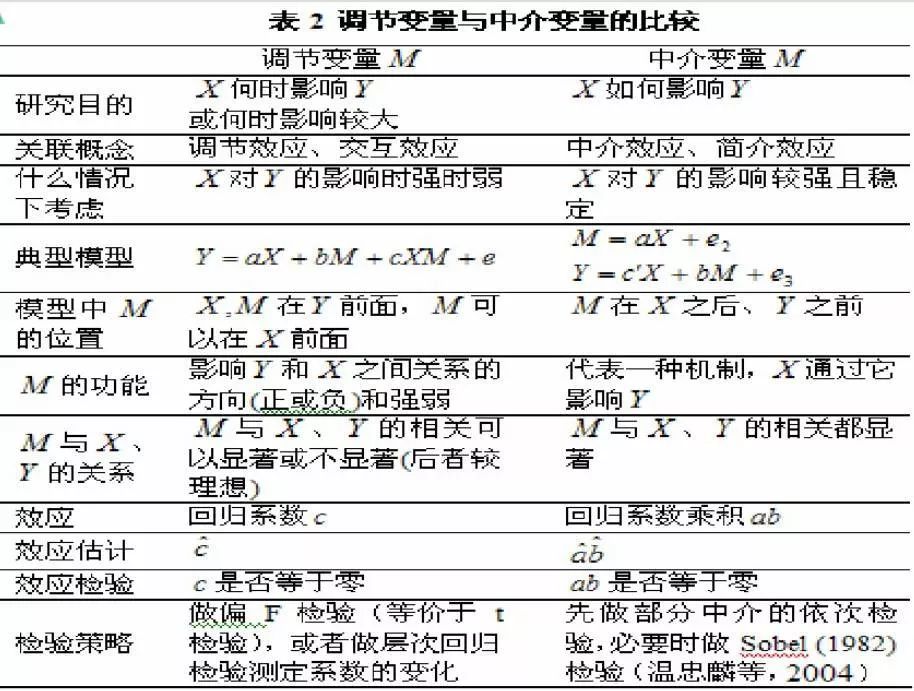 表 2 调节变量与中介变量的比较
调节变量 M 中介变量 M
研究目的 X 何时影响 Y 或何时影响较大 X 如何影响 Y
关联概念 调节效应、交互效应 中介效应、简介效应
什么情况下考虑 X 对 Y 的影响时强时弱 X 对 Y 的影响较强且稳定
典型模型 Y = aX + bM + cXM + e M = aX + e₂ Y = c'X + bM + e₃
模型中 M 的位置 X,M 在 Y 前面，M 可以在 X 前面 M 在 X 之后、Y 之前
M 的功能 影响 Y 和 X 之间关系的方向(正或负)和强弱 代表一种机制，X 通过它影响 Y
M 与 X、Y 的关系 M 与 X、Y 的相关可以显著或不显著(后者较理想) M 与 X、Y 的相关都显著
效应 回归系数 c 回归系数乘积 ab
效应估计 ĉ âb̂
效应检验 c 是否等于零 ab 是否等于零
检验策略 做偏 F 检验（等价于 t 检验），或者做层次回归检验测定系数的变化 先做部分中介的依次检验，必要时做 Sobel (1982) 检验（温忠麟等，2004）